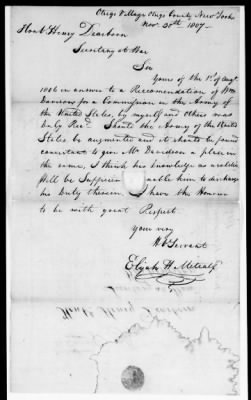 Otego Village Otsego County New York
Nov. 30th 1807.
Honbl Henry Dearborn
Secretary at War
Sir
Yours of the 1st of Augt
1806 in answer to a Recomendation of Wm
Davison for a Commission in the Army of
the United States, by myself and Others was
Duly Recd. Should the Army of the United
States be augmented and it should be found
consistant to give Mr Davidson a place in
the same, I think his knowledge as a soldier
Will be Sufficien enable him to discharge
his Duty therein. I have the Honour
to be with great Respect
Your very
H. Servant
Elijah H. Metcalf